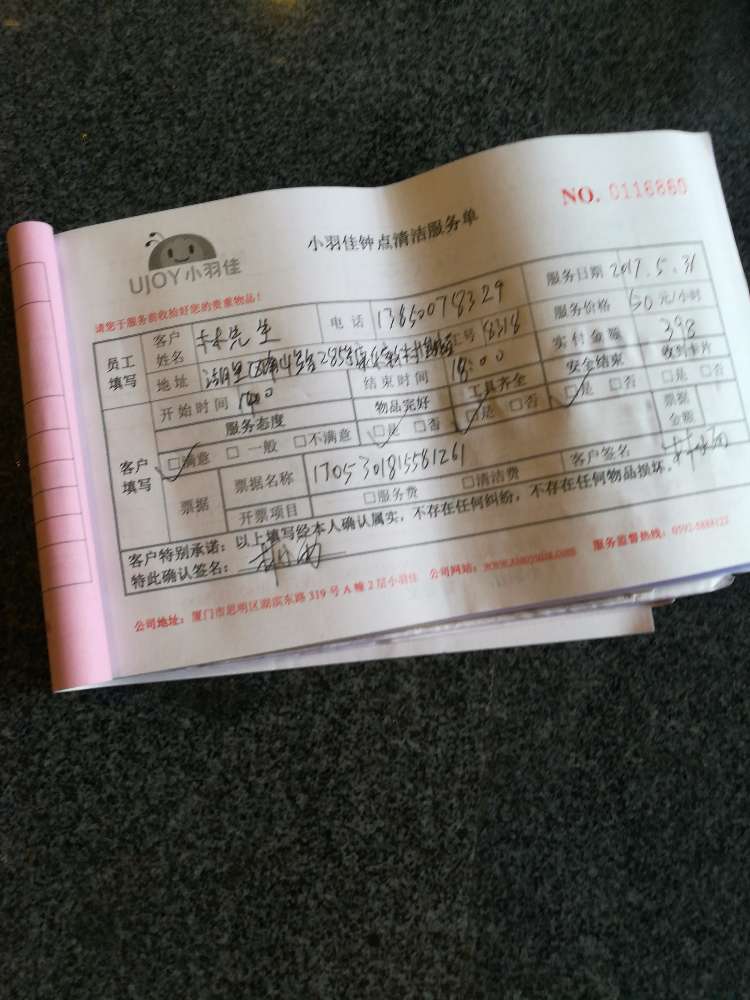 NO. 0116860
UJOY 小羽佳
小羽佳钟点清洁服务单
请您于服务前收拾好您的贵重物品!
服务日期 2017.5.31
员工填写 客户姓名 林先生 电话 13850078329 服务价格 50元/小时
地址 湖里区 285号 工号 8318 实付金额 398
开始时间 结束时间 18:00
服务态度 物品完好 工具齐全 安全结束 收到卡片
客户填写 □满意 □一般 □不满意 □是 □否 □是 □否 □是 □否 □是 □否
票据 票据名称 1705301815581261 票据金额
开票项目 □服务费 □清洁费 客户签名
客户特别承诺:以上填写经本人确认属实,不存在任何纠纷,不存在任何物品损坏。
特此确认签名:
公司地址:厦门市思明区湖滨东路319号A幢2层小羽佳 公司网站: 服务监督热线: